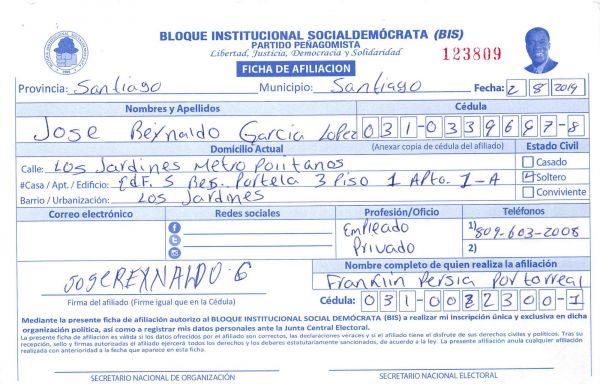 BLOQUE INSTITUCIONAL SOCIALDEMÓCRATA (BIS)
PARTIDO PEÑAGOMISTA
Libertad, Justicia, Democracia y Solidaridad
123809
FICHA DE AFILIACION
Provincia: Santiago Municipio: Santiago Fecha: 2 8 2019
Nombres y Apellidos Cédula
Jose Reynaldo Garcia Lopez 031-0339667-8
Domicilio Actual (Anexar copia de cédula del afiliado) Estado Civil
Calle: Los Jardines Metropolitanos Casado
#Casa / Apt. / Edificio: Edf. S Res. Portela 3 Piso 1 Apto. 1-A Soltero
Barrio / Urbanización: Los Jardines Conviviente
Correo electrónico Redes sociales Profesión/Oficio Teléfonos
Empleado 1) 809-603-2008
Privado 2)
JOSE REYNALDO G
Nombre completo de quien realiza la afiliación
Franklin Persia Portorreal
Firma del afiliado (Firme igual que en la Cédula) Cédula: 031-0082300-1
Mediante la presente ficha de afiliación autorizo al BLOQUE INSTITUCIONAL SOCIAL DEMÓCRATA (BIS) a realizar mi inscripción única y exclusiva en dicha
organización política, así como a registrar mis datos personales ante la Junta Central Electoral.
La presente ficha de afiliación es válida si los datos ofrecidos por el afiliado son correctos, las declaraciones veraces y si el afiliado tiene el disfrute de sus derechos civiles y políticos. Tras su
recepción, sello y firmas autorizadas el afiliado ejercerá todos los derechos y los deberes estatutariamente sancionados, de acuerdo a la ley. La presente afiliación anula cualquier afiliación
realizada con anterioridad a la fecha que aparece en esta ficha.
SECRETARIO NACIONAL DE ORGANIZACIÓN SECRETARIO NACIONAL ELECTORAL